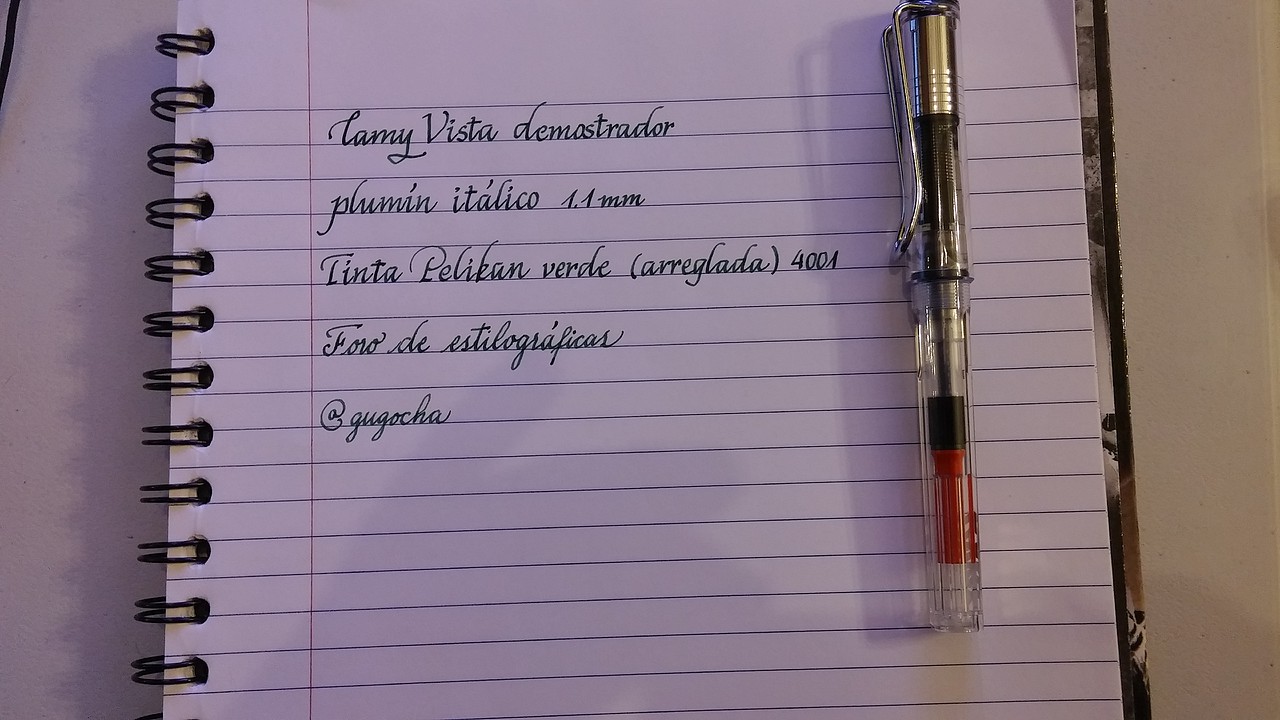 Lamy Vista demostrador
plumín itálico 1.1 mm
Tinta Pelikan verde (arreglada) 4001
Foro de estilográficas
@gugocha